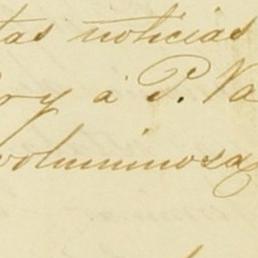 tas noticias
ry á P. Va
voluminosa